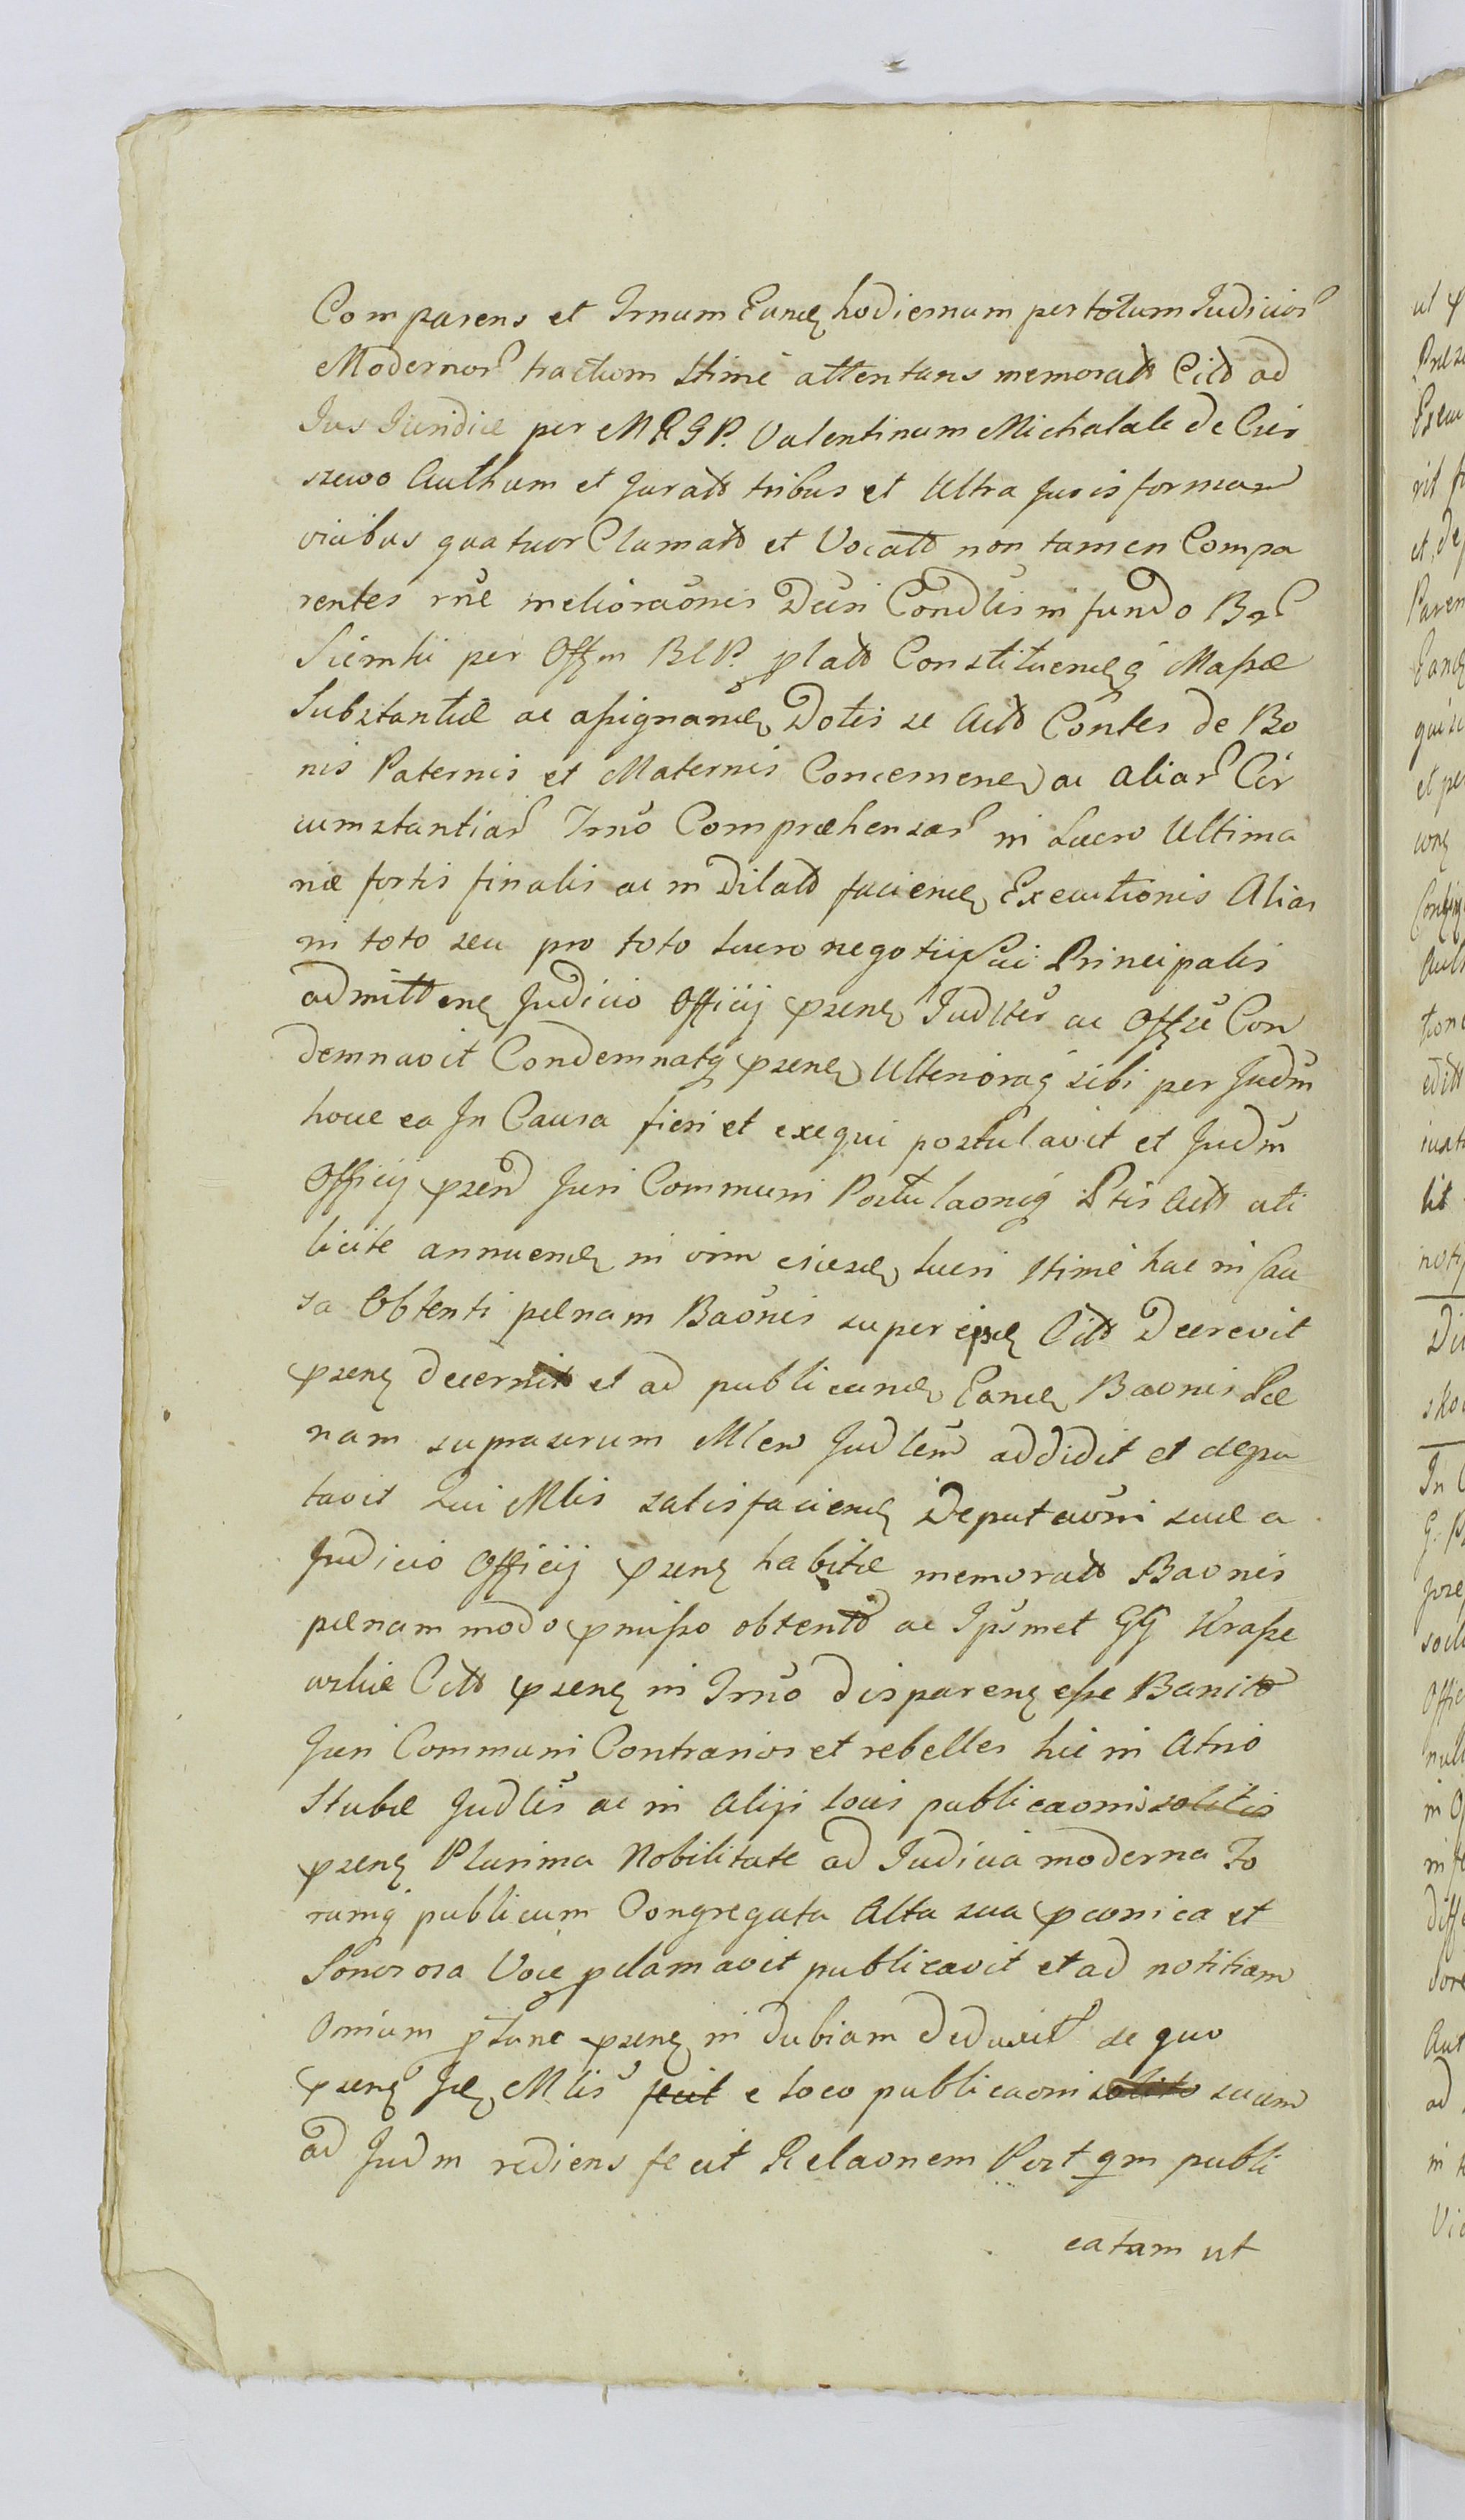 Comparens et Trnum Eund hodiernum per totum Judicior
Modernor tractum Ltime attentans memoratt Citt ad
Jus Juridice per MRGP. Valentinum Michalak de Cier
szewo Authum et Juratt tribus et Ultra Juris formam
vicibus quatuor Clamatt et Vocatt non tamen Compa
rentes rne melioraonis Decri Condlis in fundo Br
Siemkii per Offm BCP. platt Constituendq Massæ
Substantiæ ac assignand Dotis se Actt Contes de Bo
nis Paternis et Maternis Concernen ac aliar Cir
cumstantiar Trno Compræhensar in Lucro Ultima
riæ fortis finalis ac in Dilatt faciend Executionis Alias
in toto seu pro toto lucro negotii sui Principalis
admitten Judicio Officij psen Judlter ac Offse Con
demnavit Condemnatq psen Ulterioraq sibi per Judm
hocce ea In Causa fieri et exequi postulavit et Judm
Officij psen Juri Communi Postulaoniq Ptis Actt uti
licite annuend in vim eiusd lucri Ltime hac in Cau
sa Obtenti pænam Baonis super eosd Citt Decrevit
psen decernit et ad publicand Eand Baonis Pæ
nam suprascrum Mlem Judlem addidit et depu
tavit Qui Mlis satisfaciend Deputaoni suæ a
Judicio Officij psen habitæ memoratt Baonis
pænam modo pmisso obtentt ac Ipsmet GG Krasse
wskie Citt psen in Trno disparen esse Banitt
Juri Communi Contrarios et rebelles hic in Atrio
Stubæ Judlis ac in alijs locis publicaonis solitis
psen Plurima Nobilitate ad Judicia moderna Fo
rumq publicum Congregata Alta sua pconica et
Sonorosa Voce pclamavit publicavit et ad notitiam
Omium ptunc psen in dubiam deduxit de quo
psen Id Mlis fecit e loco publicaoni solito suum
ad Judm rediens fecit Relaonem Post qm publi
catam ut